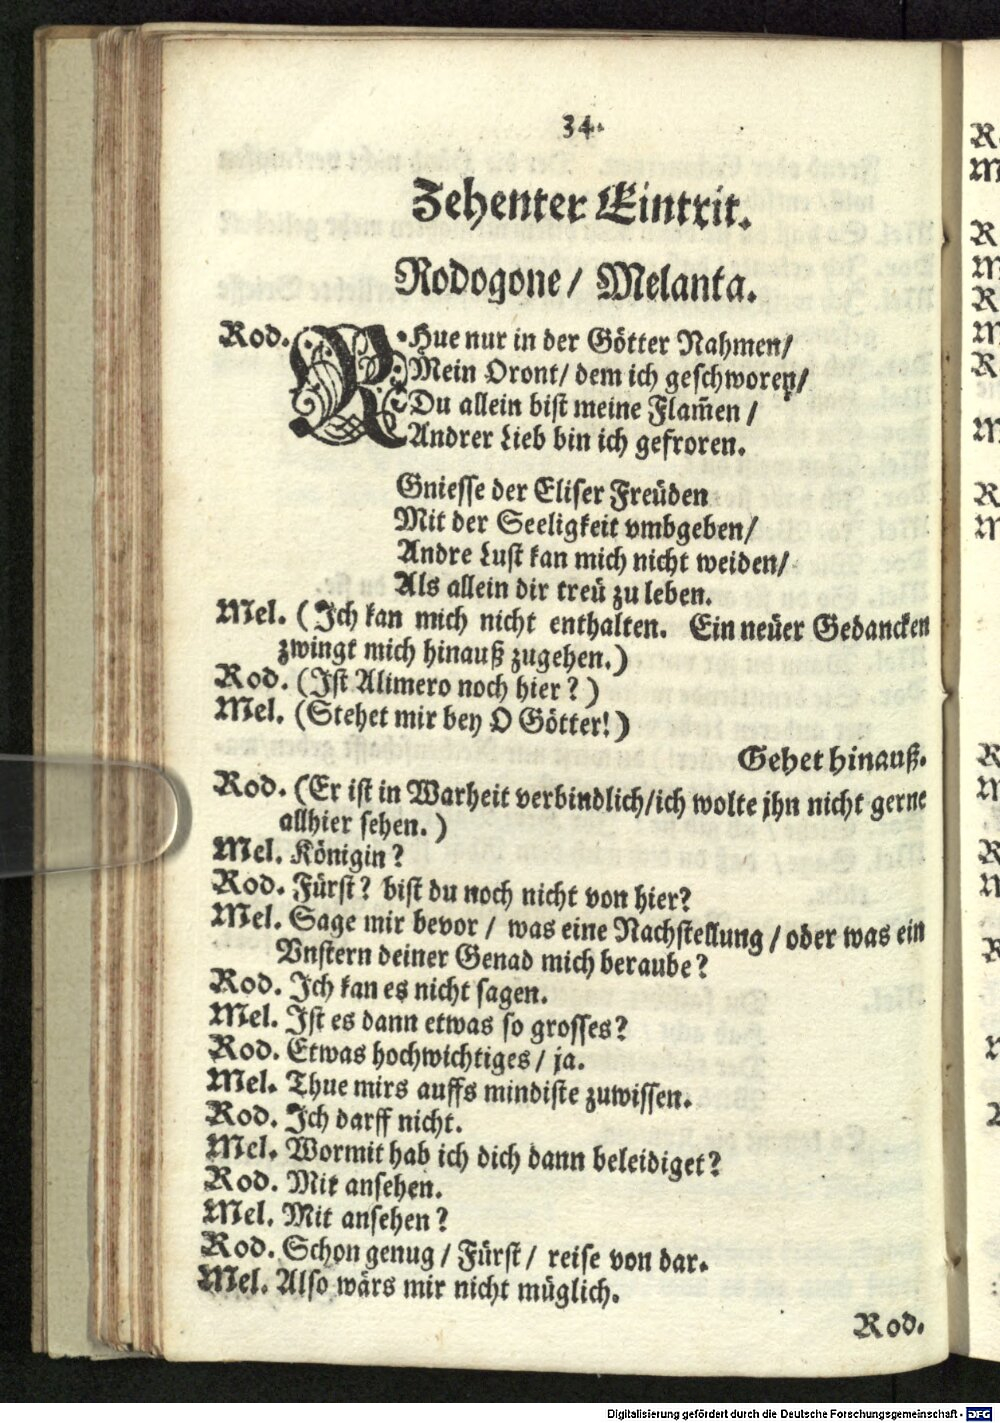 34.
Zehenter Eintrit.
Rodogone / Melanta.
Rod. RHue nur in der Götter Nahmen/
Mein Oront/ dem ich geschworen/
Du allein bist meine Flam̃en /
Andrer Lieb bin ich gefroren.
Gniesse der Eliser Freüden
Mit der Seeligkeit vmbgeben/
Andre Lust kan mich nicht weiden/
Als allein dir treü zu leben.
Mel. (Ich kan mich nicht enthalten. Ein neüer Gedancken
zwingt mich hinauß zugehen.)
Rod. (Ist Alimero noch hier?)
Mel. (Stehet mir bey O Götter!)
Gehet hinauß.
Rod. (Er ist in Warheit verbindlich/ich wolte jhn nicht gerne
allhier sehen.)
Mel. Königin?
Rod. Fürst? bist du noch nicht von hier?
Mel. Sage mir bevor / was eine Nachstellung / oder was ein
Vnstern deiner Genad mich beraube?
Rod. Ich kan es nicht sagen.
Mel. Ist es dann etwas so grosses?
Rod. Etwas hochwichtiges / ja.
Mel. Thue mirs auffs mindiste zuwissen.
Rod. Ich darff nicht.
Mel. Wormit hab ich dich dann beleidiget?
Rod. Mit ansehen.
Mel. Mit ansehen?
Rod. Schon genug / Fürst / reise von dar.
Mel. Also wärs mir nicht müglich.
Rod.
Digitalisierung gefördert durch die Deutsche Forschungsgemeinschaft - DFG